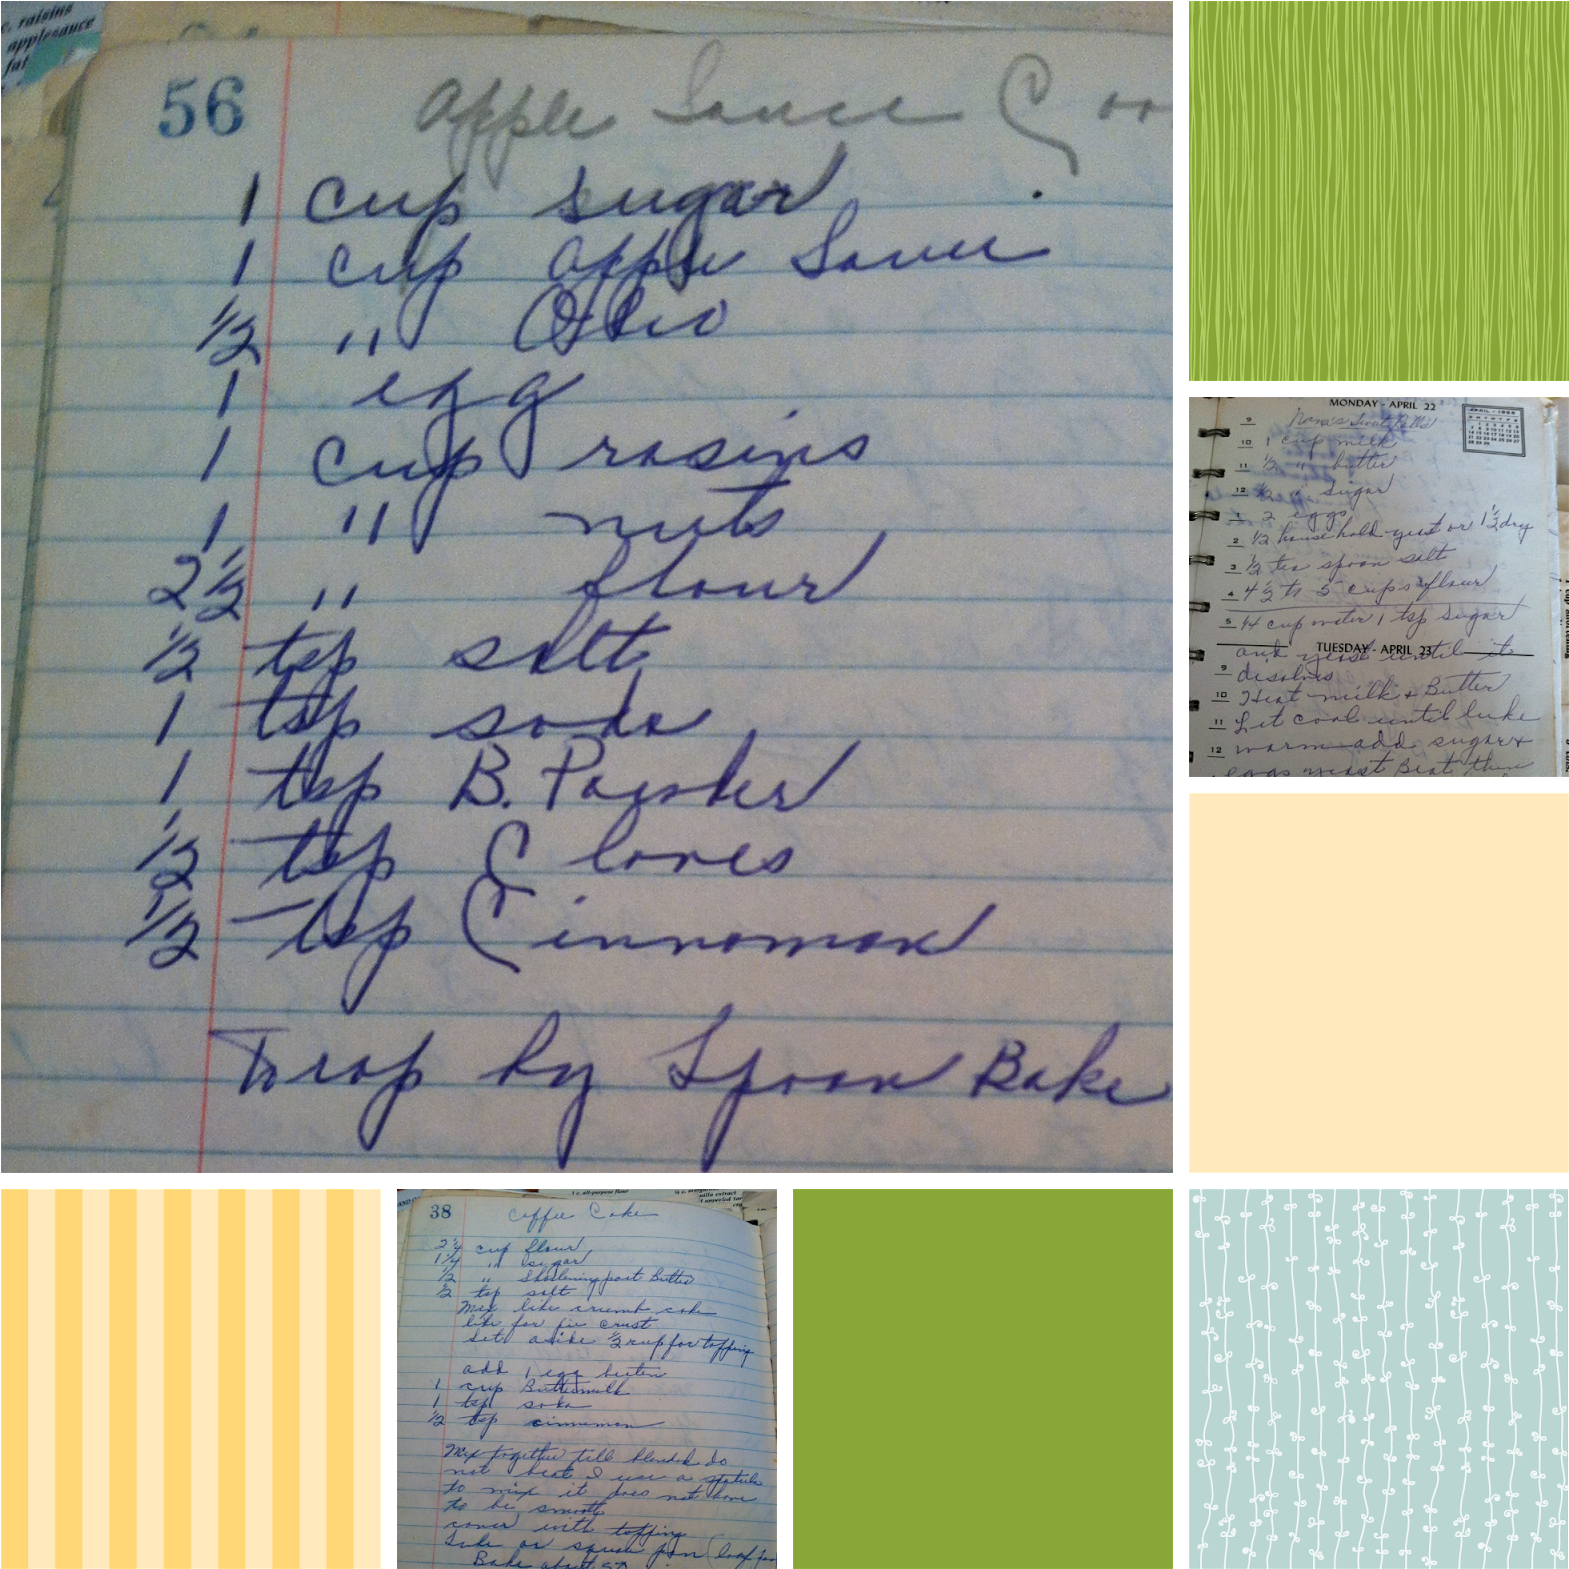 c. raisins
applesauce
fat
56
Apple Sauce Coo
1 cup sugar
1 cup apple Sauce
1/2 " Oleo
1 egg
1 cup rasins
1 " nuts
2 1/2 " flour
1/2 tsp salt
1 tsp soda
1 tsp B. Powder
1/2 tsp Cloves
1/2 tsp Cinnamon
Drop by Spoon Bake
MONDAY - APRIL 22
Nana's Sweet Rolls
9
10 1 cup milk
11 1/2 " butter
12 1/2 " sugar
1 2 eggs
2 1/2 household yeast or 1 1/2 dry
3 1/2 tea spoon salt
4 4 1/2 to 5 cups flour
5 1/4 cup water 1 tsp sugar
and yeast until it
TUESDAY - APRIL 23
9 disolves
10 Heat milk & Butter
11 Let cool until luke
12 warm add sugar &
eggs yeast Beat then
38 Coffee Cake
2 1/4 cup flour
1 1/4 " sugar
1/2 " Shortening part Butter
1/2 tsp salt
Mix like crumb cake
like for pie crust
set aside 1/2 cup for topping
add 1 egg beaten
1 cup Buttermilk
1 tsp soda
1/2 tsp cinnamon
Mix together till blended do
not beat I use a
to mix it does not have
to be smooth
cover with topping
or square pan (loaf pan
Bake about 50